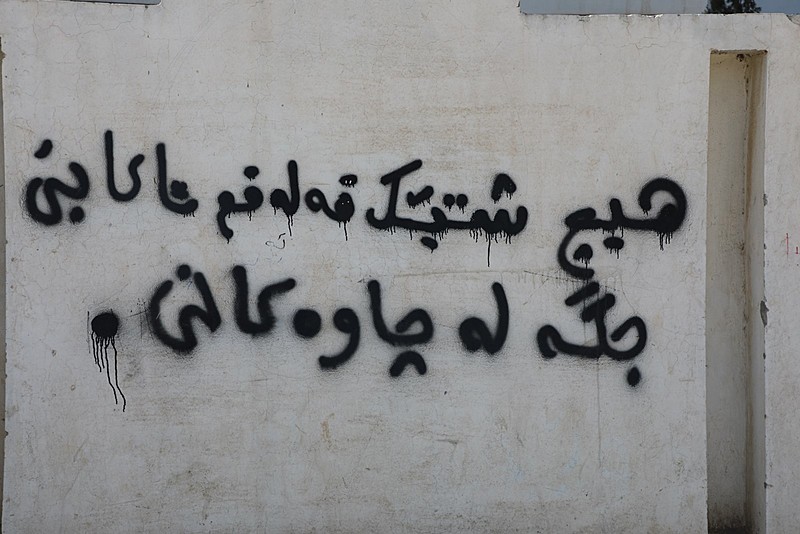 هیچ شتێک قەلەقم ناکا بێ
جگە لە چاوەکانی.